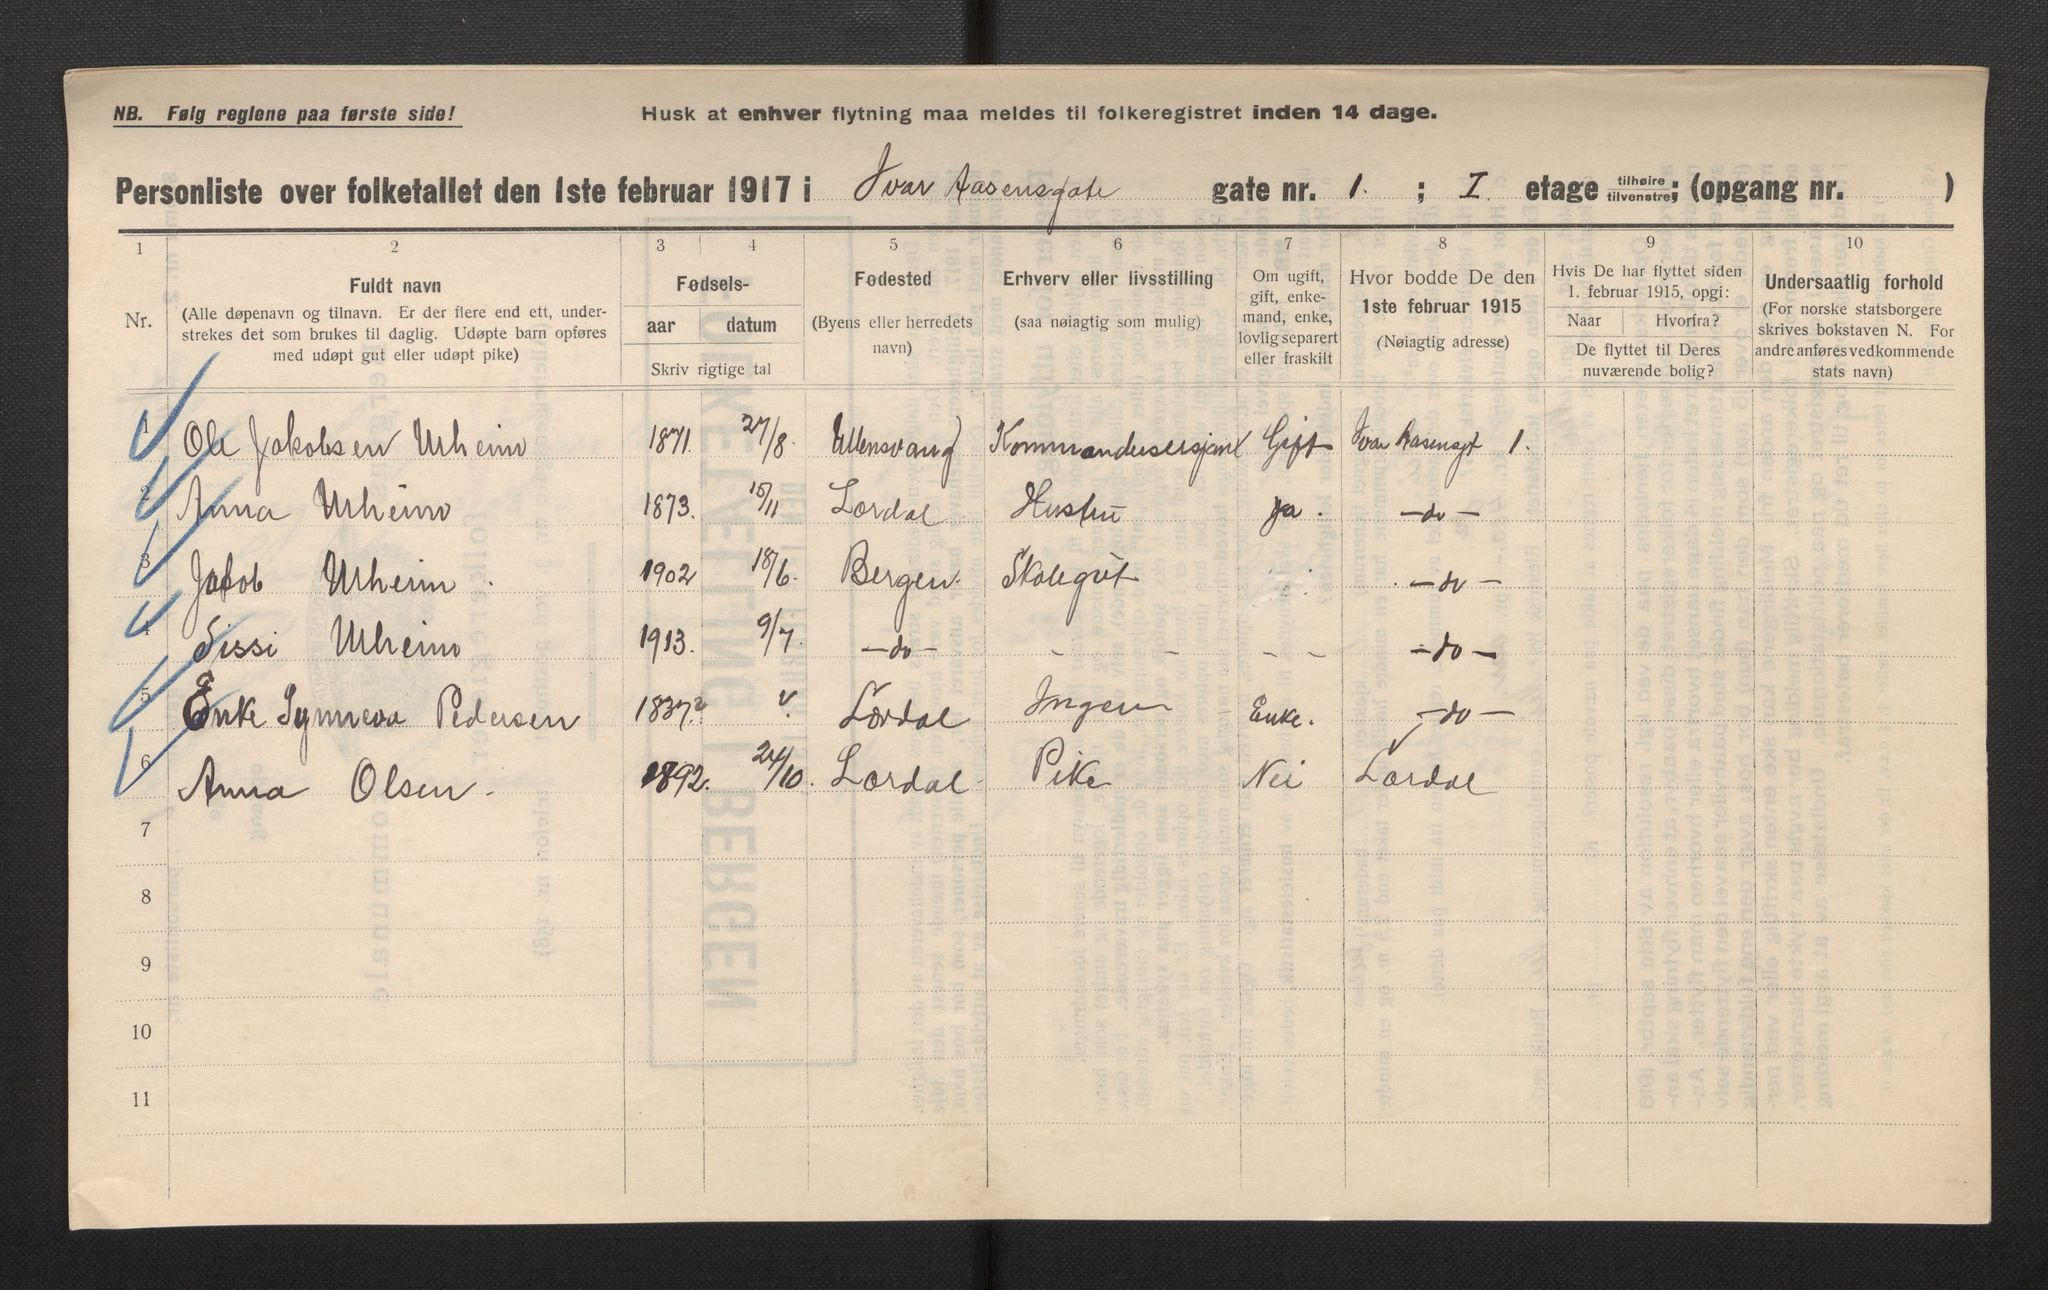 NB. Følg reglene paa første side! Husk at enhver flytning maa meldes til folkeregistret inden 14 dage.
Personliste over folketallet den 1ste februar 1917 i Ivar Aasensgate gate nr. 1. ; I. etage tilhøire tilvenstre; (opgang nr. )
1 2 3 4 5 6 7 8 9 10
Nr.
Fuldt navn
(Alle døpenavn og tilnavn. Er der flere end ett, under-
strekes det som brukes til daglig. Udøpte barn opføres
med udøpt gut eller udøpt pike)
Fødsels-
aar datum
Skriv rigtige tal
Fødested
(Byens eller herredets
navn)
Erhverv eller livsstilling
(saa nøiagtig som mulig)
Om ugift,
gift, enke-
mand, enke,
lovlig separert
eller fraskilt
Hvor bodde De den
1ste februar 1915
(Nøiagtig adresse)
Hvis De har flyttet siden
1. februar 1915, opgi:
Naar Hvorfra?
De flyttet til Deres
nuværende bolig?
Undersaatlig forhold
(For norske statsborgere
skrives bokstaven N. For
andre anføres vedkommende
stats navn)
1 Ole Jakobsen Urheim 1871. 27/8. Ullensvang Kommandersersjant Gift Ivar Aasensgt 1.
2 Anna Urheim 1873. 15/11 Lærdal Hustru ja. -do-
3 Jakob Urheim. 1902 18/6. Bergen. Skolegut -do-
4 Sissi Urheim 1913. 9/7. -do- - - - - -do-
5 Enke Synneva Pedersen 1837? Lærdal Ingen - Enke. -do-
6 Anna Olsen. 1892. 24/10. Lærdal. Pike Nei Lærdal
7
8
9
10
11